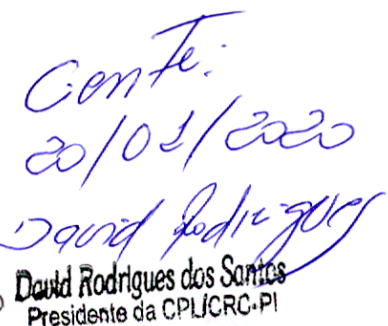 Confe:
20/01/2020
David Rodrigues
David Rodrigues dos Santos
Presidente da CPL/CRC-PI